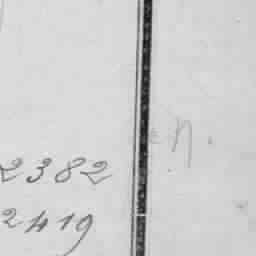 n.
2382
2419